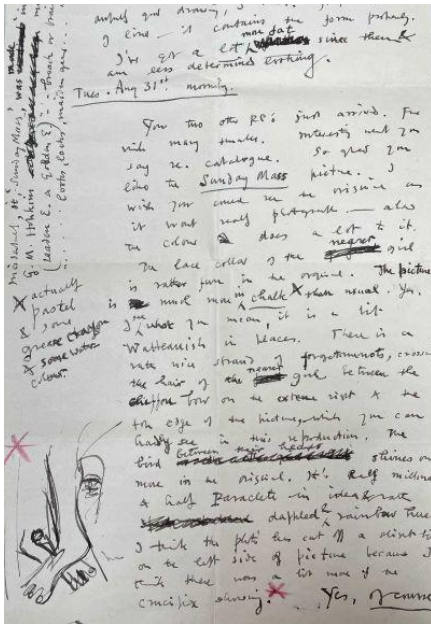 awfully good drawing, I
I line – it contains the form properly.
I've got a lot more fat since then &
am less determined looking.
Tues. Aug 31st morning.
You two other RPs just arrived.
with many thanks. Interesting what you
say re. catalogue. So glad you
like the Sunday Mass picture. I
wish you could see the original as
it won't really photograph — also
the colour does a lot to it.
The lace collar of the nearer girl
is rather fun in the original. The picture
is much more in chalk X than usual. Yes,
I see what you mean, it is a bit
Watteauish in places. There is a
rather nice strand of forgetmenots, crossing
the hair of the nearest girl between the
chiffon bow on the extreme right & the
top edge of the picture, which you can
hardly see in this reproduction. The
bird between their heads shines out
more in the original. It's half
& half Paraclete in idea &
dappled & rainbow
I think the photo has cut off a
on the left side of picture because I
think there was a bit more of the
crucifix showing. X Yes, of course
X actually
pastel
& some
grease crayon
& some water
colour.
'Sunday Mass', was made
G. M. Hopkins
(Leaden E. & Golden E)
looks, locks, maiden gear